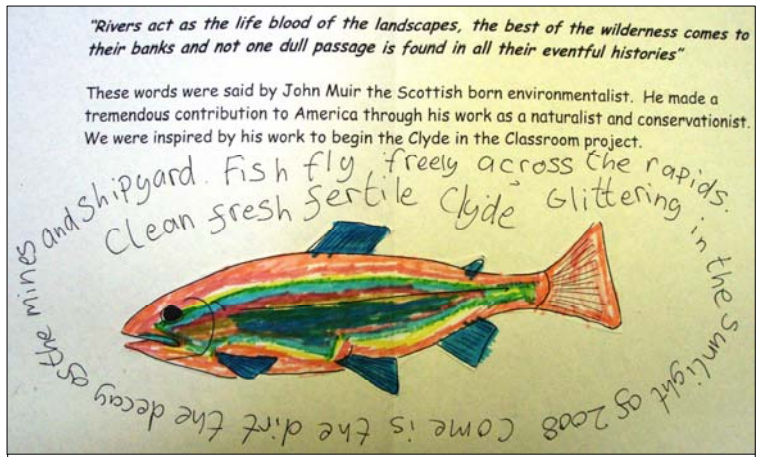 "Rivers act as the life blood of the landscapes, the best of the wilderness comes to
their banks and not one dull passage is found in all their eventful histories"
These words were said by John Muir the Scottish born environmentalist. He made a
tremendous contribution to America through his work as a naturalist and conservationist.
We were inspired by his work to begin the Clyde in the Classroom project.
Fish fly freely across the rapids. Glittering in the sunlight of 2008 Come is the dirt the decay of the mines and shipyard.
Clean fresh fertile Clyde